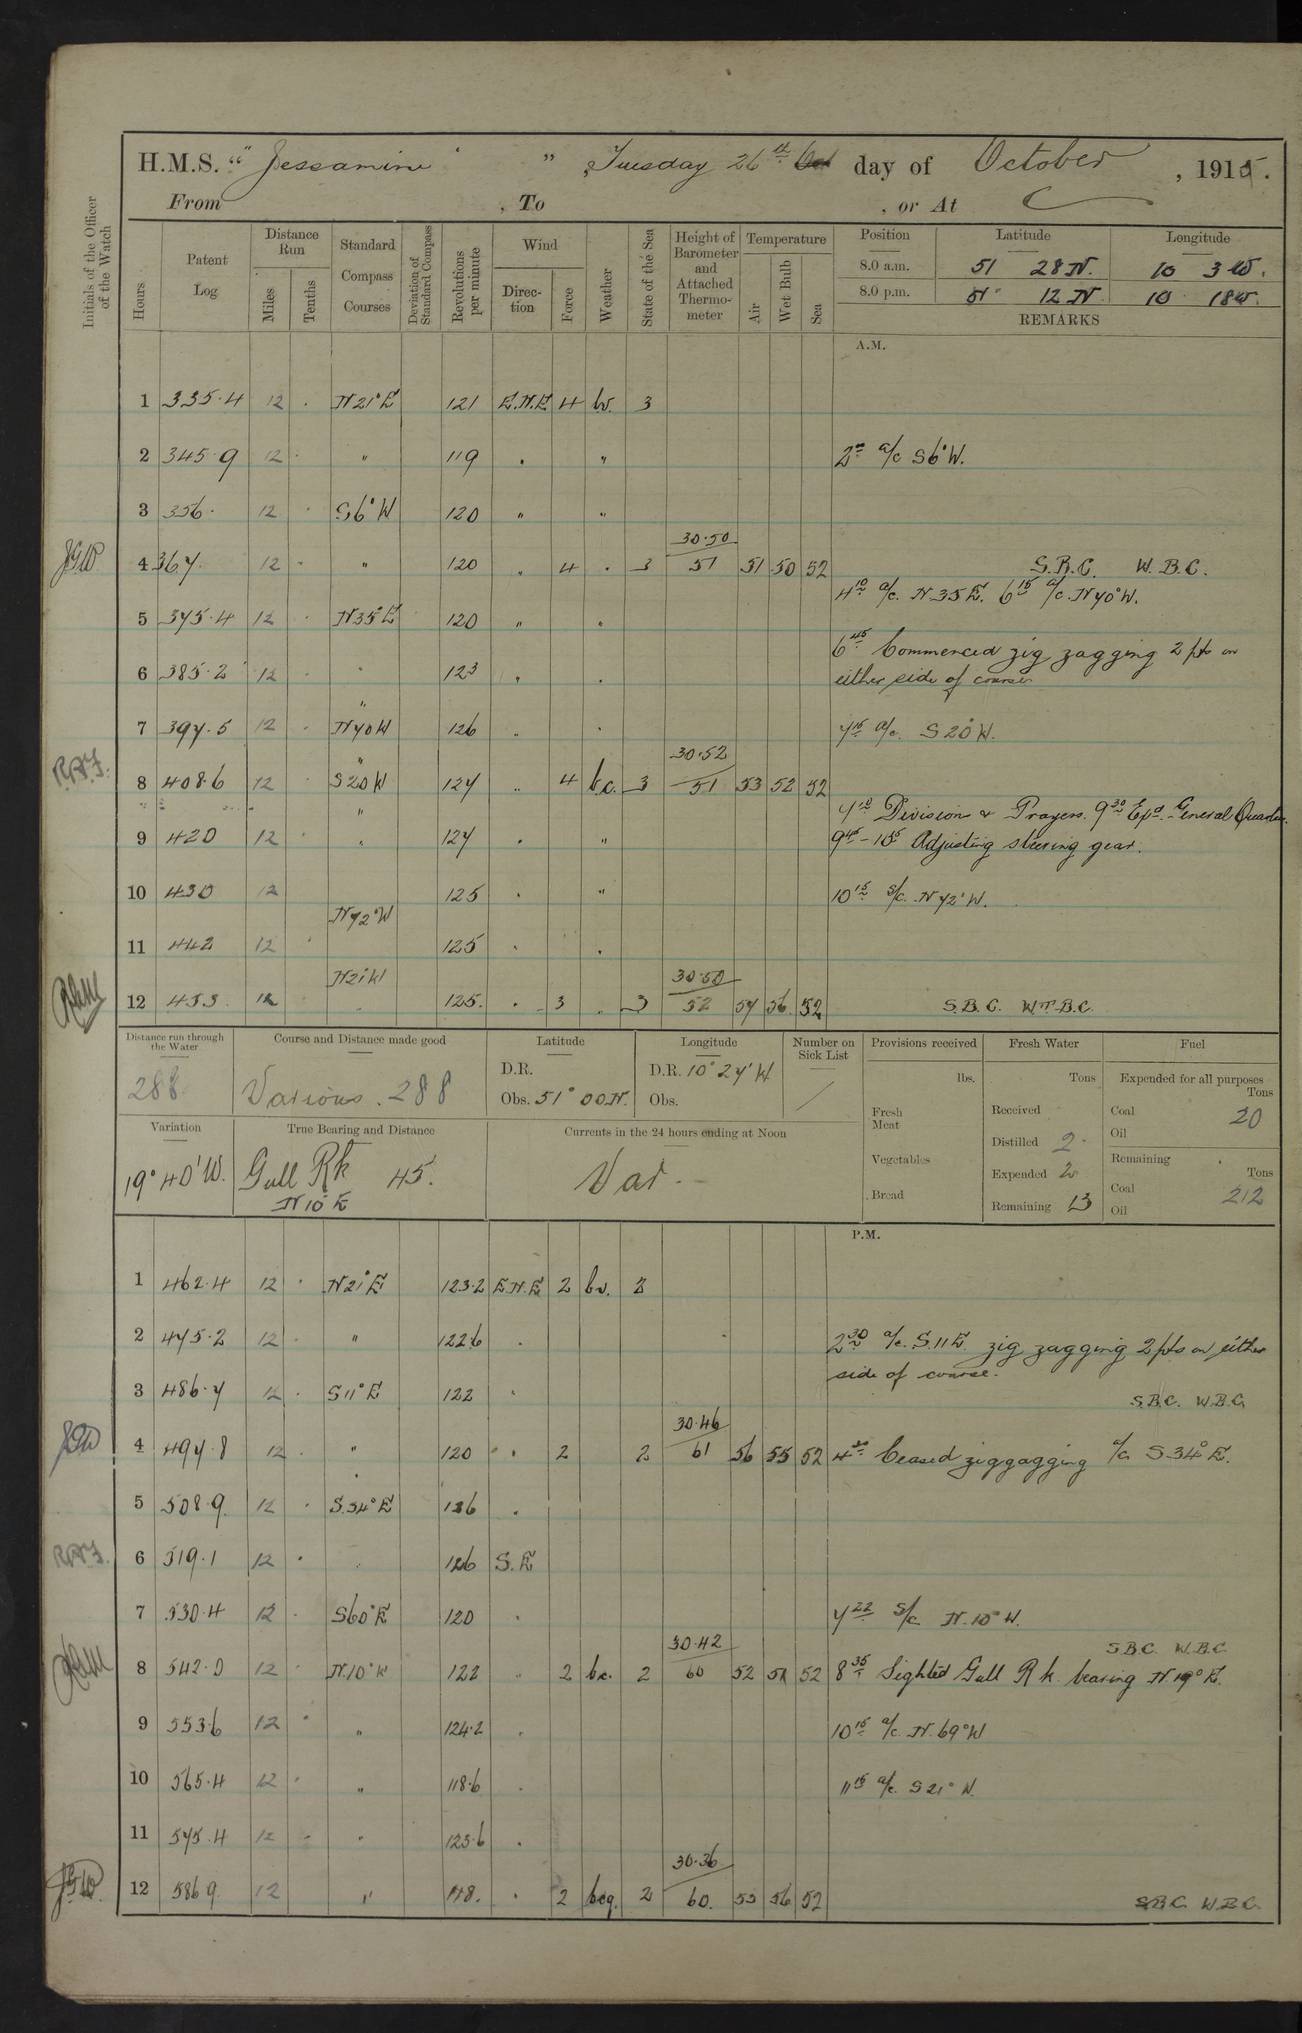 H.M.S. "Jessamine" Tuesday 26th day of October, 1915.
From , To , or At
Initials of the Officer of the Watch
Hours
Patent Log
Distance Run
Miles
Tenths
Standard Compass Courses
Deviation of Standard Compass
Revolutions per minute
Wind
Direction
Force
Weather
State of the Sea
Height of Barometer and Attached Thermometer
Temperature
Air
Wet Bulb
Sea
Position Latitude Longitude
8.0 a.m. 51 28 N. 10 3 W.
8.0 p.m. 51 12 N. 10 18 W.
REMARKS
A.M.
1 335.4 12 . N21°E 121 E.N.E 4 bv. 3
2 345.9 12 . " 119 . " 2 a/c S6°W.
3 356. 12 . S6°W 120 " "
30.50
4 367. 12 . " 120 " 4 . 3 51 51 50 52 S.B.C. W.B.C.
4 10 a/c. N35E. 6 15 a/c. N70°W.
5 375.4 12 . N35°E 120 " "
6 45 Commenced zig zagging 2 pts on
6 385.2 12 . " 123 " . either side of course
7 397.5 12 . N70W 126 " . 7 15 a/c. S20°W.
30.52
8 408.6 12 . S20W 127 " 4 b.c. 3 51 53 52 52
Division & Prayers. 9 30 Exd. General Quarters.
9 420 12 . " 127 . " 9 45 - 10 5 Adjusting steering gear.
10 430 12 125 . " 10 15 s/c. N72°W.
N72°W
11 442 12 . 125 . .
N21W 30.50
12 453. 12 125. . 3 . 3 52 57 56 52 S.B.C. WTBC.
Distance run through the Water
288
Course and Distance made good
Various. 288
Latitude
D.R.
Obs. 51° 00 N.
Longitude
D.R. 10° 27' W
Obs.
Number on Sick List
/
Provisions received
lbs.
Fresh Meat
Vegetables
Bread
Fresh Water
Tons
Received
Distilled 2
Expended 2
Remaining 13
Fuel
Expended for all purposes
Tons
Coal 20
Oil
Remaining
Tons
Coal 212
Oil
Variation
19° 40' W.
True Bearing and Distance
Gull Rk 45.
N 10° E
Currents in the 24 hours ending at Noon
Var.
P.M.
1 462.4 12 . N21°E 123.2 E.N.E 2 bv. 2
2 475.2 12 . " 122.6 . 2 30 a/c. S.11E. zig zagging 2 pts on either
side of course.
3 486.7 12 . S11°E 122 . S.B.C. W.B.C.
30.46
4 497.8 12 . " 120 " . 2 2 61 56 55 52 Ceased zigzagging a/c S34°E.
5 508.9 12 . S.34°E 126 .
6 519.1 12 . 126 S.E
7 530.4 12 . S60°E 120 . 7 22 s/c N.10°W.
30.42 S.B.C. W.B.C.
8 542.0 12 . N.10°W 122 " 2 bc. 2 60 52 51 52 8 35 Sighted Gull Rk bearing N.19°E.
9 553.6 12 . " 124.2 . 10 15 a/c. N.69°W
10 565.4 12 . " 118.6 . 11 15 a/c. S21°W.
11 575.4 12 . " 123.6 .
30.36
12 586.9 12 " 118. . 2 bcq. 2 60. 56 52 S.B.C. W.B.C.